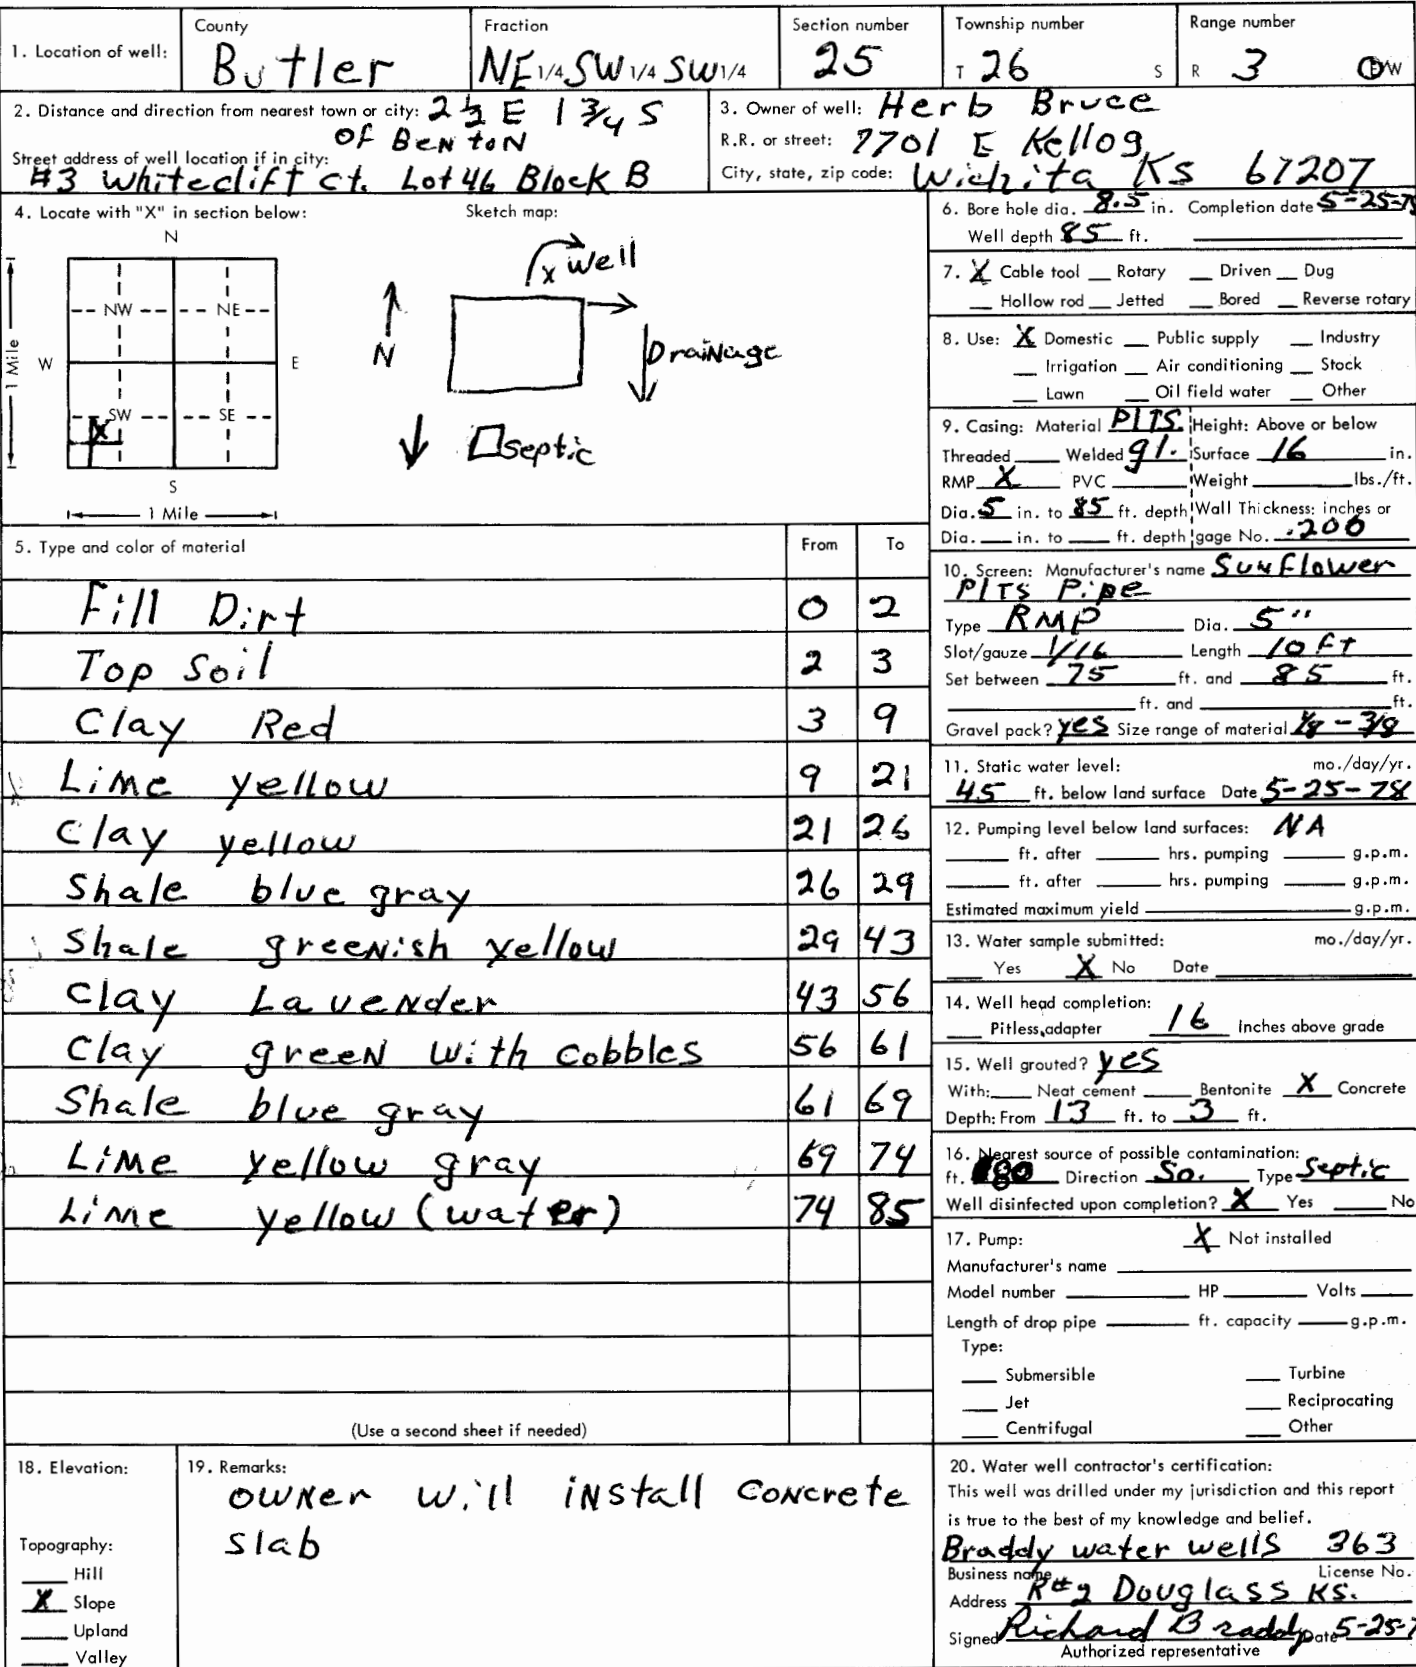 County Fraction Section number Township number Range number
1. Location of well: Butler NE 1/4 SW 1/4 SW 1/4 25 T 26 S R 3 E/W
2. Distance and direction from nearest town or city: 2 1/2 E 1 3/4 S
of Benton
Street address of well location if in city:
#3 Whiteclift ct. Lot 46 Block B
3. Owner of well: Herb Bruce
R.R. or street: 7701 E Kellog
City, state, zip code: Wichita Ks 67207
4. Locate with "X" in section below: Sketch map:
N
NW NE
W E
SW SE
X
S
1 Mile
1 Mile
X Well
N
Drainage
septic
5. Type and color of material From To
Fill Dirt 0 2
Top Soil 2 3
Clay Red 3 9
Lime yellow 9 21
Clay yellow 21 26
Shale blue gray 26 29
Shale greenish yellow 29 43
Clay Lavender 43 56
Clay green with cobbles 56 61
Shale blue gray 61 69
Lime yellow gray 69 74
Lime yellow (water) 74 85
(Use a second sheet if needed)
6. Bore hole dia. 8.5 in. Completion date 5-25-78
Well depth 85 ft.
7. X Cable tool __ Rotary __ Driven __ Dug
__ Hollow rod __ Jetted __ Bored __ Reverse rotary
8. Use: X Domestic __ Public supply __ Industry
__ Irrigation __ Air conditioning __ Stock
__ Lawn __ Oil field water __ Other
9. Casing: Material PITS. Height: Above or below
Threaded ____ Welded gl. Surface 16 in.
RMP X PVC ____ Weight ____ lbs./ft.
Dia. 5 in. to 85 ft. depth Wall Thickness: inches or
Dia. __ in. to __ ft. depth gage No. .200
10. Screen: Manufacturer's name Sunflower
PITS Pipe
Type RMP Dia. 5"
Slot/gauze 1/16 Length 10 ft
Set between 75 ft. and 85 ft.
____ ft. and ____ ft.
Gravel pack? yes Size range of material 1/8 - 3/8
11. Static water level: mo./day/yr.
45 ft. below land surface Date 5-25-78
12. Pumping level below land surfaces: NA
____ ft. after ____ hrs. pumping ____ g.p.m.
____ ft. after ____ hrs. pumping ____ g.p.m.
Estimated maximum yield ____ g.p.m.
13. Water sample submitted: mo./day/yr.
__ Yes X No Date ____
14. Well head completion:
__ Pitless adapter 16 Inches above grade
15. Well grouted? yes
With: __ Neat cement __ Bentonite X Concrete
Depth: From 13 ft. to 3 ft.
16. Nearest source of possible contamination:
ft. 80 Direction So. Type Septic
Well disinfected upon completion? X Yes ____ No
17. Pump: X Not installed
Manufacturer's name ____
Model number ____ HP ____ Volts ____
Length of drop pipe ____ ft. capacity ____ g.p.m.
Type:
__ Submersible __ Turbine
__ Jet __ Reciprocating
__ Centrifugal __ Other
18. Elevation:
Topography:
__ Hill
X Slope
__ Upland
__ Valley
19. Remarks:
owner will install concrete
slab
20. Water well contractor's certification:
This well was drilled under my jurisdiction and this report
is true to the best of my knowledge and belief.
Braddy water wells 363
Business name License No.
Address R#2 Douglass Ks.
Signed Richard Braddy Date 5-25-7
Authorized representative